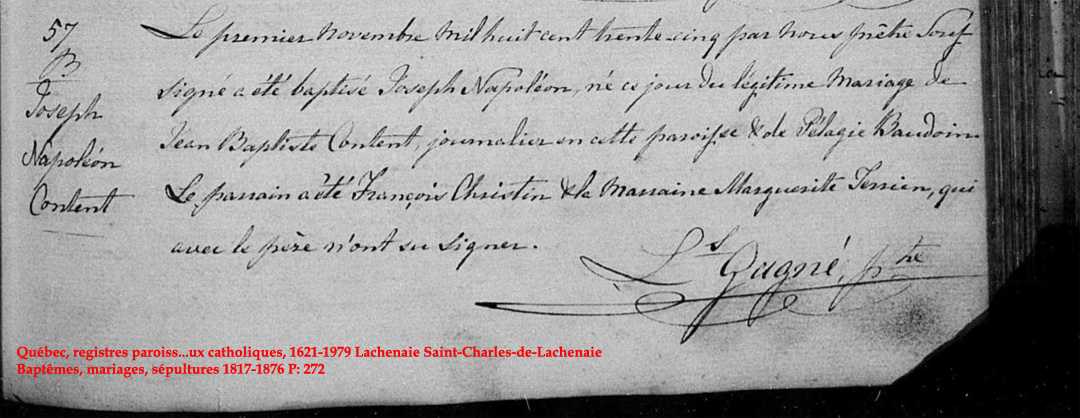 57
B
Joseph
Napoléon
Content
Le premier Novembre Mil huit cent trente-cinq par Nous prêtre Souf
signé a été baptisé Joseph Napoléon, né ce jour du légitime Mariage de
Jean Baptiste Content, journalier en cette paroisse & de Pélagie Baudoin
Le parrain a été François Christin & la Marraine Marguerite Terrien, qui
avec le père n'ont su signer.
Ls Gagné, ptre
Québec, registres paroiss...ux catholiques, 1621-1979 Lachenaie Saint-Charles-de-Lachenaie
Baptêmes, mariages, sépultures 1817-1876 P: 272